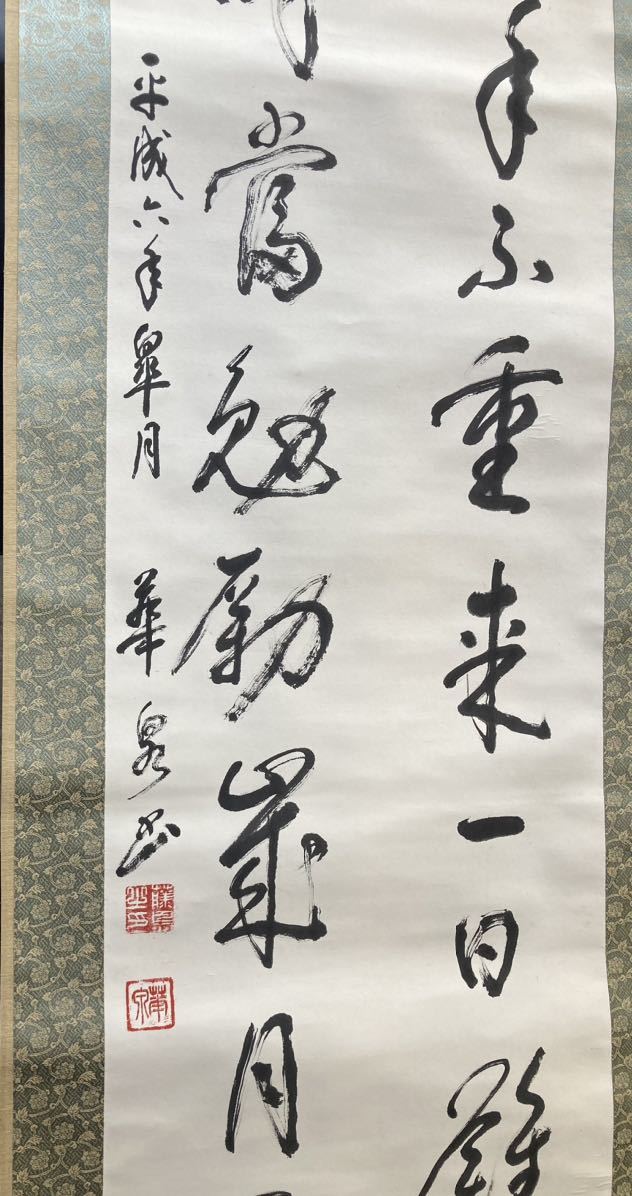 年不重来一日難
時當勉励歳月
平成六年皐月 華泉書
華泉